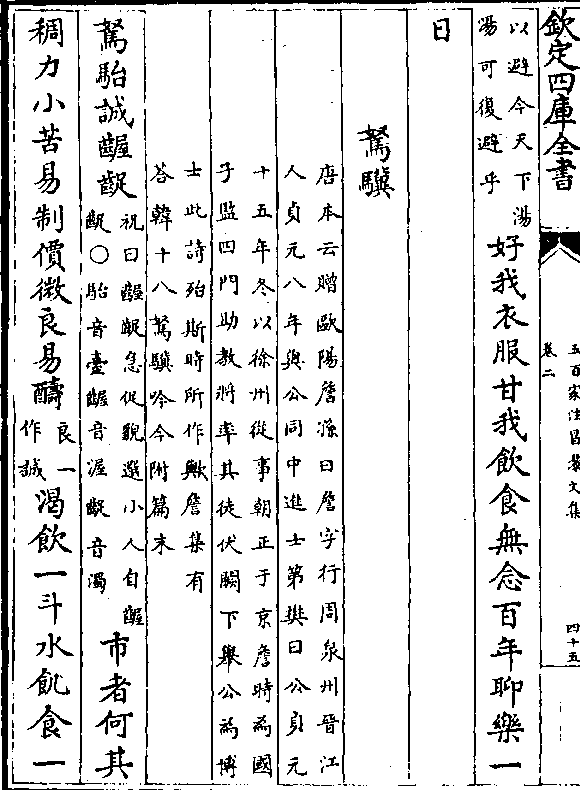 欽定四庫全書
五百家注昌黎文集
卷二
四十五
以避今天下湯
湯可復避乎
好我衣服甘我飲食無念百年聊樂一
日
駑驥
唐本云贈歐陽詹孫曰詹字行周泉州晉江
人貞元八年與公同中進士第樊曰公貞元
十五年冬以徐州從事朝正于京詹時為國
子監四門助教將率其徒伏闕下舉公為博
士此詩殆斯時所作歟詹集有
答韓十八駑驥吟今附篇末
駑駘誠齷齪
祝曰齷齪急促貌選小人自齷
齪〇駘音臺齷音渥齪音濁
市者何其
稠力小苦易制價微良易醻
良一
作誠
渴飲一斗水飢食一